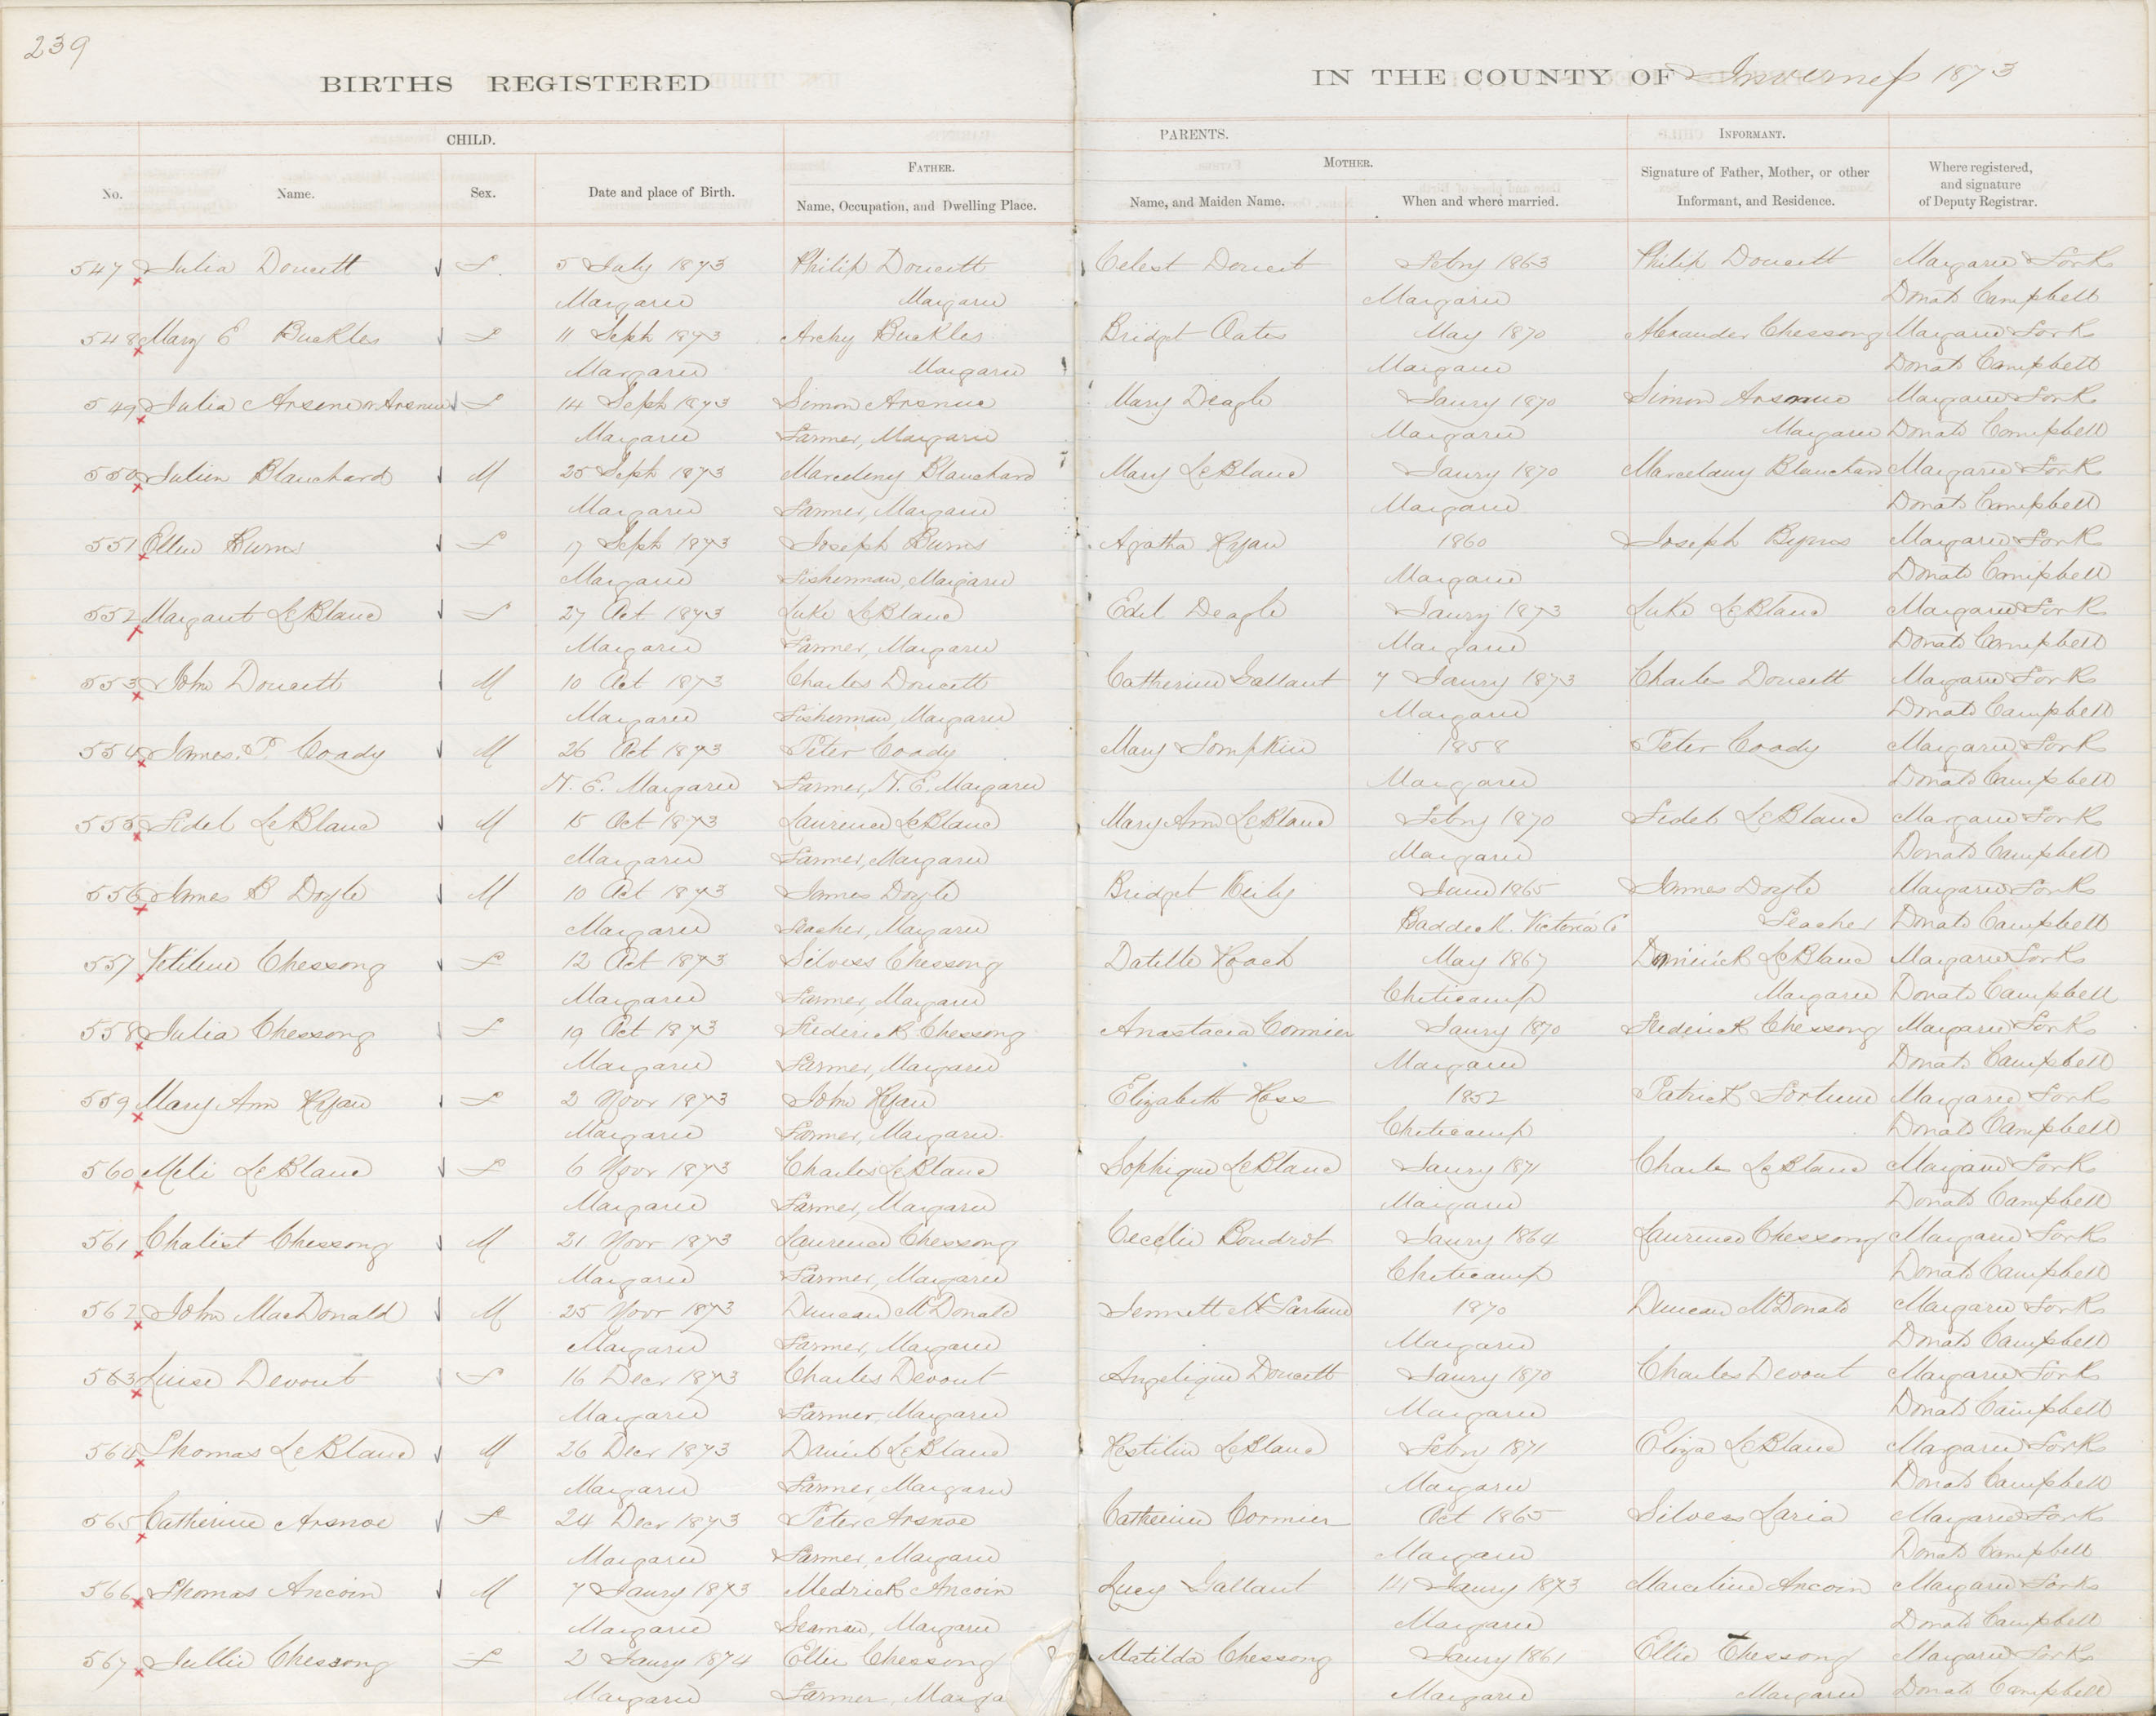 239
BIRTHS REGISTERED IN THE COUNTY OF Inverness 1873
CHILD. PARENTS. INFORMANT.
FATHER. MOTHER.
No. Name. Sex. Date and place of Birth. Name, Occupation, and Dwelling Place. Name, and Maiden Name. When and where married. Signature of Father, Mother, or other Informant, and Residence. Where registered, and signature of Deputy Registrar.
547 Julia Doucett f 5 July 1873 Philip Doucett Celest Doucet Febry 1863 Philip Doucett Margaree Forks
Margaree Margaree Margaree Donald Campbell
548 Mary E Buckles f 11 Sept 1873 Archy Buckles Bridget Oates May 1870 Alexander Chessong Margaree Forks
Margaree Margaree Margaree Donald Campbell
549 Julia Arsene or Arsnue f 14 Sept 1873 Simon Arsnue Mary Deagle Jaury 1870 Simon Arsnue Margaree Forks
Margaree Farmer, Margaree Margaree Margaree Donald Campbell
550 Julien Blanchard M 25 Sept 1873 Marceleny Blanchard Mary LeBlanc Jaury 1870 Marcelany Blanchard Margaree Forks
Margaree Farmer, Margaree Margaree Donald Campbell
551 Ellen Burns f 17 Sept 1873 Joseph Burns Agatha Ryan 1860 Joseph Byrns Margaree Forks
Margaree Fisherman, Margaree Margaree Donald Campbell
552 Margaret LeBlanc f 27 Oct 1873 Luke LeBlanc Edel Deagle Jaury 1873 Luke LeBlanc Margaree Forks
Margaree Farmer, Margaree Margaree Donald Campbell
553 John Doucett M 10 Oct 1873 Charles Doucett Catherine Gallant 7 Jaury 1873 Charles Doucett Margaree Forks
Margaree Fisherman, Margaree Margaree Donald Campbell
554 James. P. Coady M 26 Oct 1873 Peter Coady Mary Tompkin 1858 Peter Coady Margaree Forks
N. E. Margaree Farmer, N. E. Margaree Margaree Donald Campbell
555 Fidel LeBlanc M 15 Oct 1873 Laurence LeBlanc Mary Ann LeBlanc Febry 1870 Fidel LeBlanc Margaree Forks
Margaree Farmer, Margaree Margaree Donald Campbell
556 James B Doyle M 10 Oct 1873 James Doyle Bridget Keily June 1865 James Doyle Margaree Forks
Margaree Teacher, Margaree Baddeck. Victoria Co Teacher Donald Campbell
557 Vetiline Chessong f 12 Oct 1873 Silvess Chessong Datille Roach May 1867 Dominick LeBlanc Margaree Forks
Margaree Farmer, Margaree Cheticamp Margaree Donald Campbell
558 Julia Chessong f 19 Oct 1873 Frederick Chessong Anastacia Cormier Jaury 1870 Frederick Chessong Margaree Forks
Margaree Farmer, Margaree Margaree Donald Campbell
559 Mary Ann Ryan f 2 Novr 1873 John Ryan Elizabeth Ross 1852 Patrick Fortune Margaree Forks
Margaree Farmer, Margaree. Cheticamp Donald Campbell
560 Meli LeBlanc f 6 Novr 1873 Charles LeBlanc Sophique LeBlanc Jaury 1871 Charles LeBlanc Margaree Forks
Margaree Farmer, Margaree Margaree Donald Campbell
561 Chalist Chessong M 21 Novr 1873 Laurence Chessong Cecélie Boudrot Jaury 1864 Laurence Chessong Margaree Forks
Margaree Farmer, Margaree Cheticamp Donald Campbell
562 John MacDonald M 25 Novr 1873 Duncan McDonald Jennett McFarlane 1870 Duncan McDonald Margaree Forks
Margaree Farmer, Margaree Margaree Donald Campbell
563 Luise Devout f 16 Decr 1873 Charles Devout Angelique Doucett Jaury 1870 Charles Devout Margaree Forks
Margaree Farmer, Margaree Margaree Donald Campbell
564 Thomas LeBlanc M 26 Decr 1873 Daniel LeBlanc Restilin LeBlanc Febry 1871 Eliza LeBlanc Margaree Forks
Margaree Farmer, Margaree Margaree Donald Campbell
565 Catherine Arsnoe f 24 Decr 1873 Peter Arsnoe Catherine Cormier Oct 1865 Silvess Laria Margaree Forks
Margaree Farmer, Margaree Margaree Donald Campbell
566 Thomas Ancoin M 7 Jaury 1873 Medrick Ancoin Lucy Gallant 14 Jaury 1873 Marceline Ancoin Margaree Forks
Margaree Seaman, Margaree Margaree Donald Campbell
567 Jullie Chessong f 2 Jaury 1874 Ellie Chessong Matilda Chessong Jaury 1861 Ellie Chessong Margaree Forks
Margaree Farmer, Marga Margaree Margaree Donald Campbell